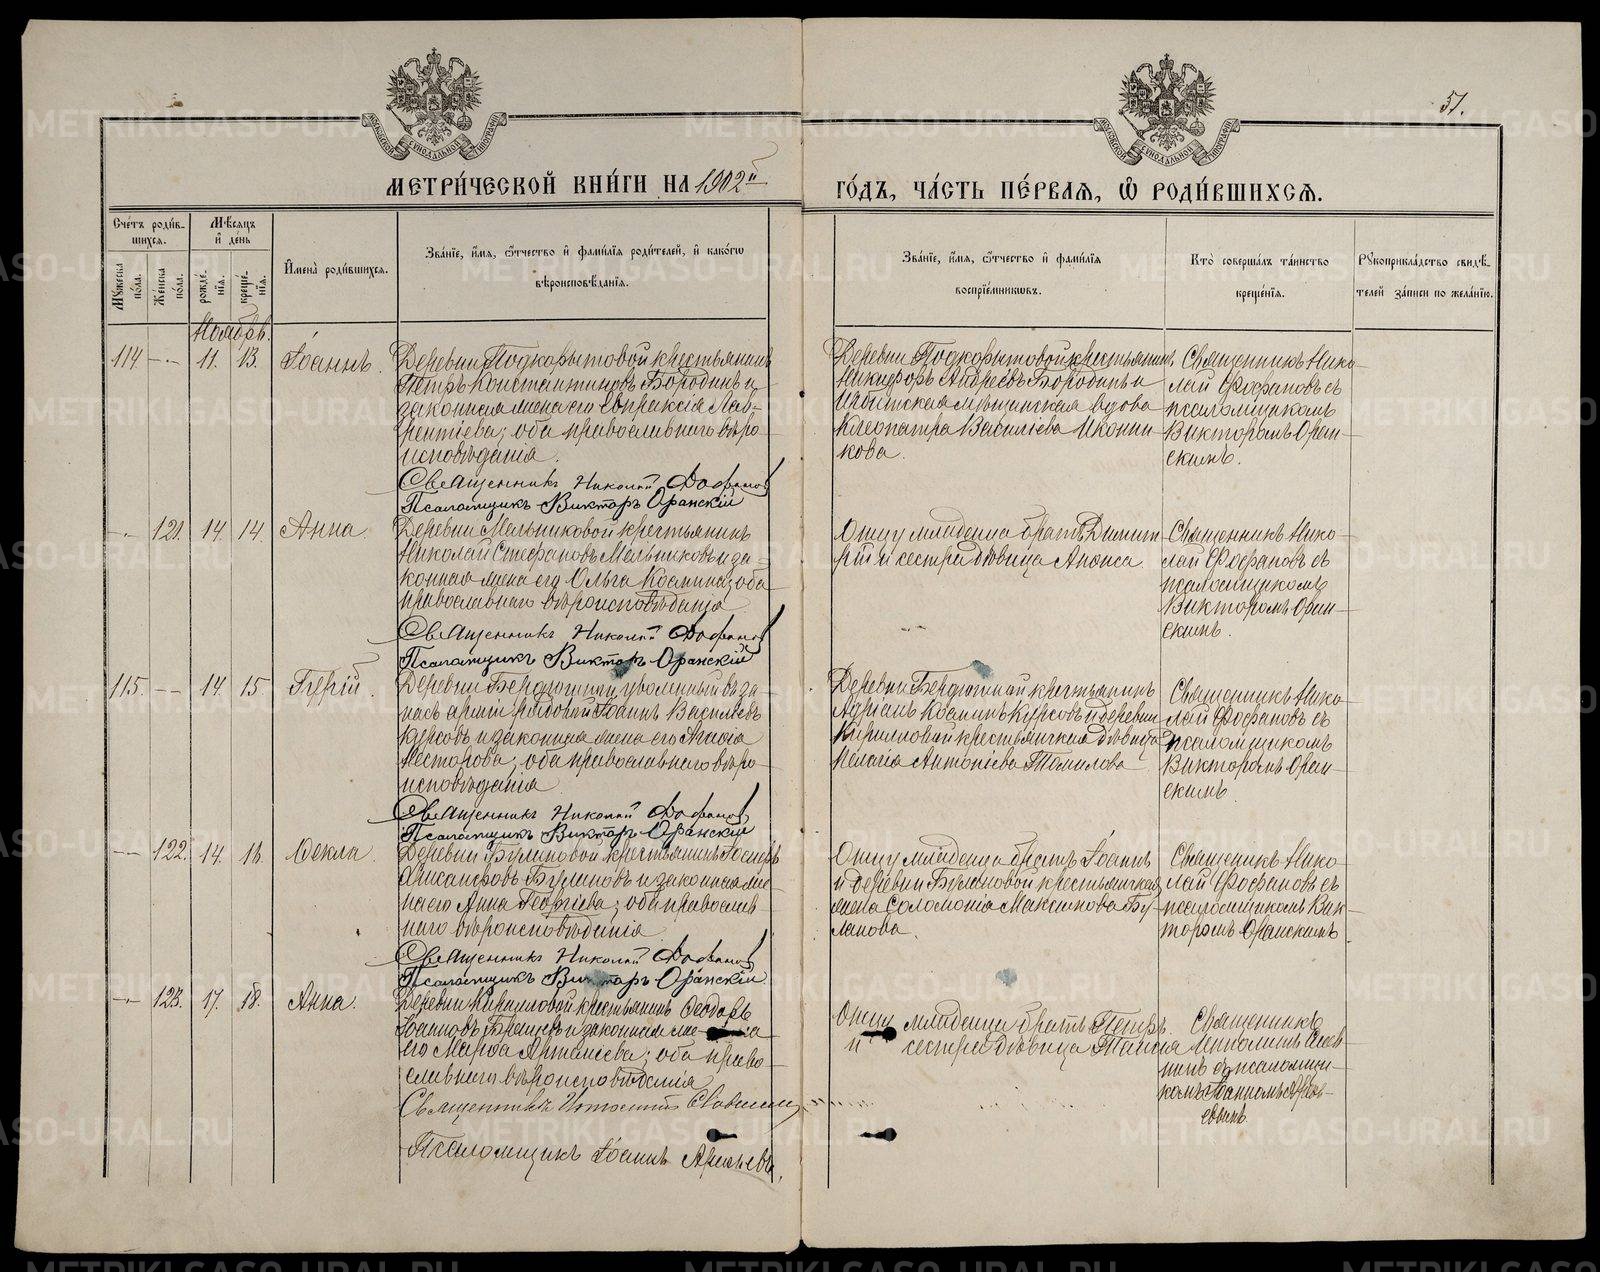 51.
МЕТРИ́ЧЕСКОЙ КНИ́ГИ НА 1902й
ГО́ДЪ, ЧА́СТЬ ПЕ́РВАЯ, Ѽ РОДИ́ВШИХСЯ.
Сче́тъ роди́в-
шихся.
Мѣ́сяцъ
и҆ де́нь
Мꙋ́жеска по́ла.
Же́нска по́ла.
рожде́-
нїя.
креще́-
нїя.
И҆мена̀ роди́вшихся.
Зва́нїе, и҆́мя, ѻ҆́тчество и҆ фами́лїя роди́телей, и҆ како́гѡ
вѣроисповѣ́данїя.
Зва́нїе, и҆́мя, ѻ҆́тчество и҆ фами́лїя
воспрїе́мникѡвъ.
Кто̀ соверша́лъ та́инство
креще́нїя.
Рꙋкоприкла́дство свидѣ́-
телей за́писи по жела́нїю.
Ноябрь.
114 — 11. 13. Іоаннъ.
Деревни Подкорытовой крестьянинъ
Петръ Константиновъ Бородинъ и
законная жена его Евпраксія Лав-
рентіева; оба православнаго вѣро-
исповѣданія.
Священникъ Николай Фофановъ
Псаломщикъ Викторъ Оранскій
Деревни Подкорытовой крестьянинъ
Никифоръ Андреевъ Бородинъ и
Ирбитская мѣщанская вдова
Клеопатра Васильева Иконни-
кова.
Священникъ Нико-
лай Фофановъ съ
псаломщикомъ
Викторомъ Оран-
скимъ.
— 121. 14. 14. Анна.
Деревни Мельниковой крестьянинъ
Николай Стефановъ Мельниковъ и за-
конная жена его Ольга Іоаннова; оба
православнаго вѣроисповѣданія
Священникъ Николай Фофановъ
Псаломщикъ Викторъ Оранскій
Отцу младенца братъ Димит-
рій и сестра дѣвица Анѳиса.
Священникъ Нико-
лай Фофановъ съ
псаломщикомъ
Викторомъ Оран-
скимъ.
115. — 14. 15 Гурій.
Деревни Бердюгиной уволенный въ за-
пасъ арміи рядовой Іоаннъ Васильевъ
Курсовъ и законная жена его Агнія
Несторова; оба православнаго вѣро-
исповѣданія
Священникъ Николай Фофановъ
Псаломщикъ Викторъ Оранскій
Деревни Бердюгиной крестьянинъ
Адріанъ Іоанновъ Курсовъ и деревни
Кирилловой крестьянская дѣвица
Пелагія Антоніева Томилова
Священникъ Нико-
лай Фофановъ съ
псаломщикомъ
Викторомъ Оран-
скимъ.
— 122. 14. 16. Ѳекла.
Деревни Булановой крестьянинъ Іосифъ
Александровъ Булановъ и законная же-
на его Анна Георгіева; оба православ-
наго вѣроисповѣданія
Священникъ Николай Фофановъ
Псаломщикъ Викторъ Оранскій
Отцу младенца братъ Іоаннъ
и деревни Булановой крестьянская
жена Соломонія Максимова Бу-
ланова.
Священникъ Нико-
лай Фофановъ съ
псаломщикомъ Вик-
торомъ Оранскимъ
— 123. 17. 18. Анна.
Деревни Кирилловой крестьянинъ Ѳеодоръ
Іоанновъ и законная жена
его Марѳа; оба право-
славнаго вѣроисповѣданія
Священникъ
Псаломщикъ Іоаннъ
Отцу младенца братъ Петръ
и сестра дѣвица Таисія
Священникъ
съ псаломщи-
комъ Іоанномъ
METRIKI.GASO-URAL.RU